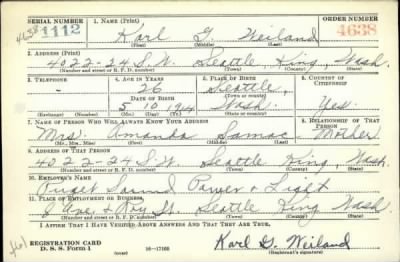 SERIAL NUMBER
1. NAME (Print)
ORDER NUMBER
4638 1112
Karl G Weiland
4638
(First) (Middle) (Last)
2. ADDRESS (Print)
4022-24 S.W. Seattle, King, Wash.
(Number and street or R. F. D. number) (Town) (County) (State)
3. TELEPHONE
4. AGE IN YEARS
5. PLACE OF BIRTH
6. COUNTRY OF CITIZENSHIP
-
26
Seattle,
DATE OF BIRTH
(Town or county)
5 10 1914
Wash.
Yes.
(Exchange) (Number)
(Mo.) (Day) (Yr.)
(State or country)
7. NAME OF PERSON WHO WILL ALWAYS KNOW YOUR ADDRESS
8. RELATIONSHIP OF THAT PERSON
Mrs. Amanda Samac
Mother
(Mr., Mrs., Miss) (First) (Middle) (Last)
9. ADDRESS OF THAT PERSON
4022-24 S.W. Seattle King, Wash.
(Number and street or R. F. D. number) (Town) (County) (State)
10. EMPLOYER'S NAME
Puget Sound Power & Light
11. PLACE OF EMPLOYMENT OR BUSINESS
8 Ave. & Roy St. Seattle King Wash.
(Number and street or R. F. D. number) (Town) (County) (State)
I AFFIRM THAT I HAVE VERIFIED ABOVE ANSWERS AND THAT THEY ARE TRUE.
REGISTRATION CARD
D. S. S. Form 1
(over)
16-17105
Karl G. Weiland
(Registrant's signature)